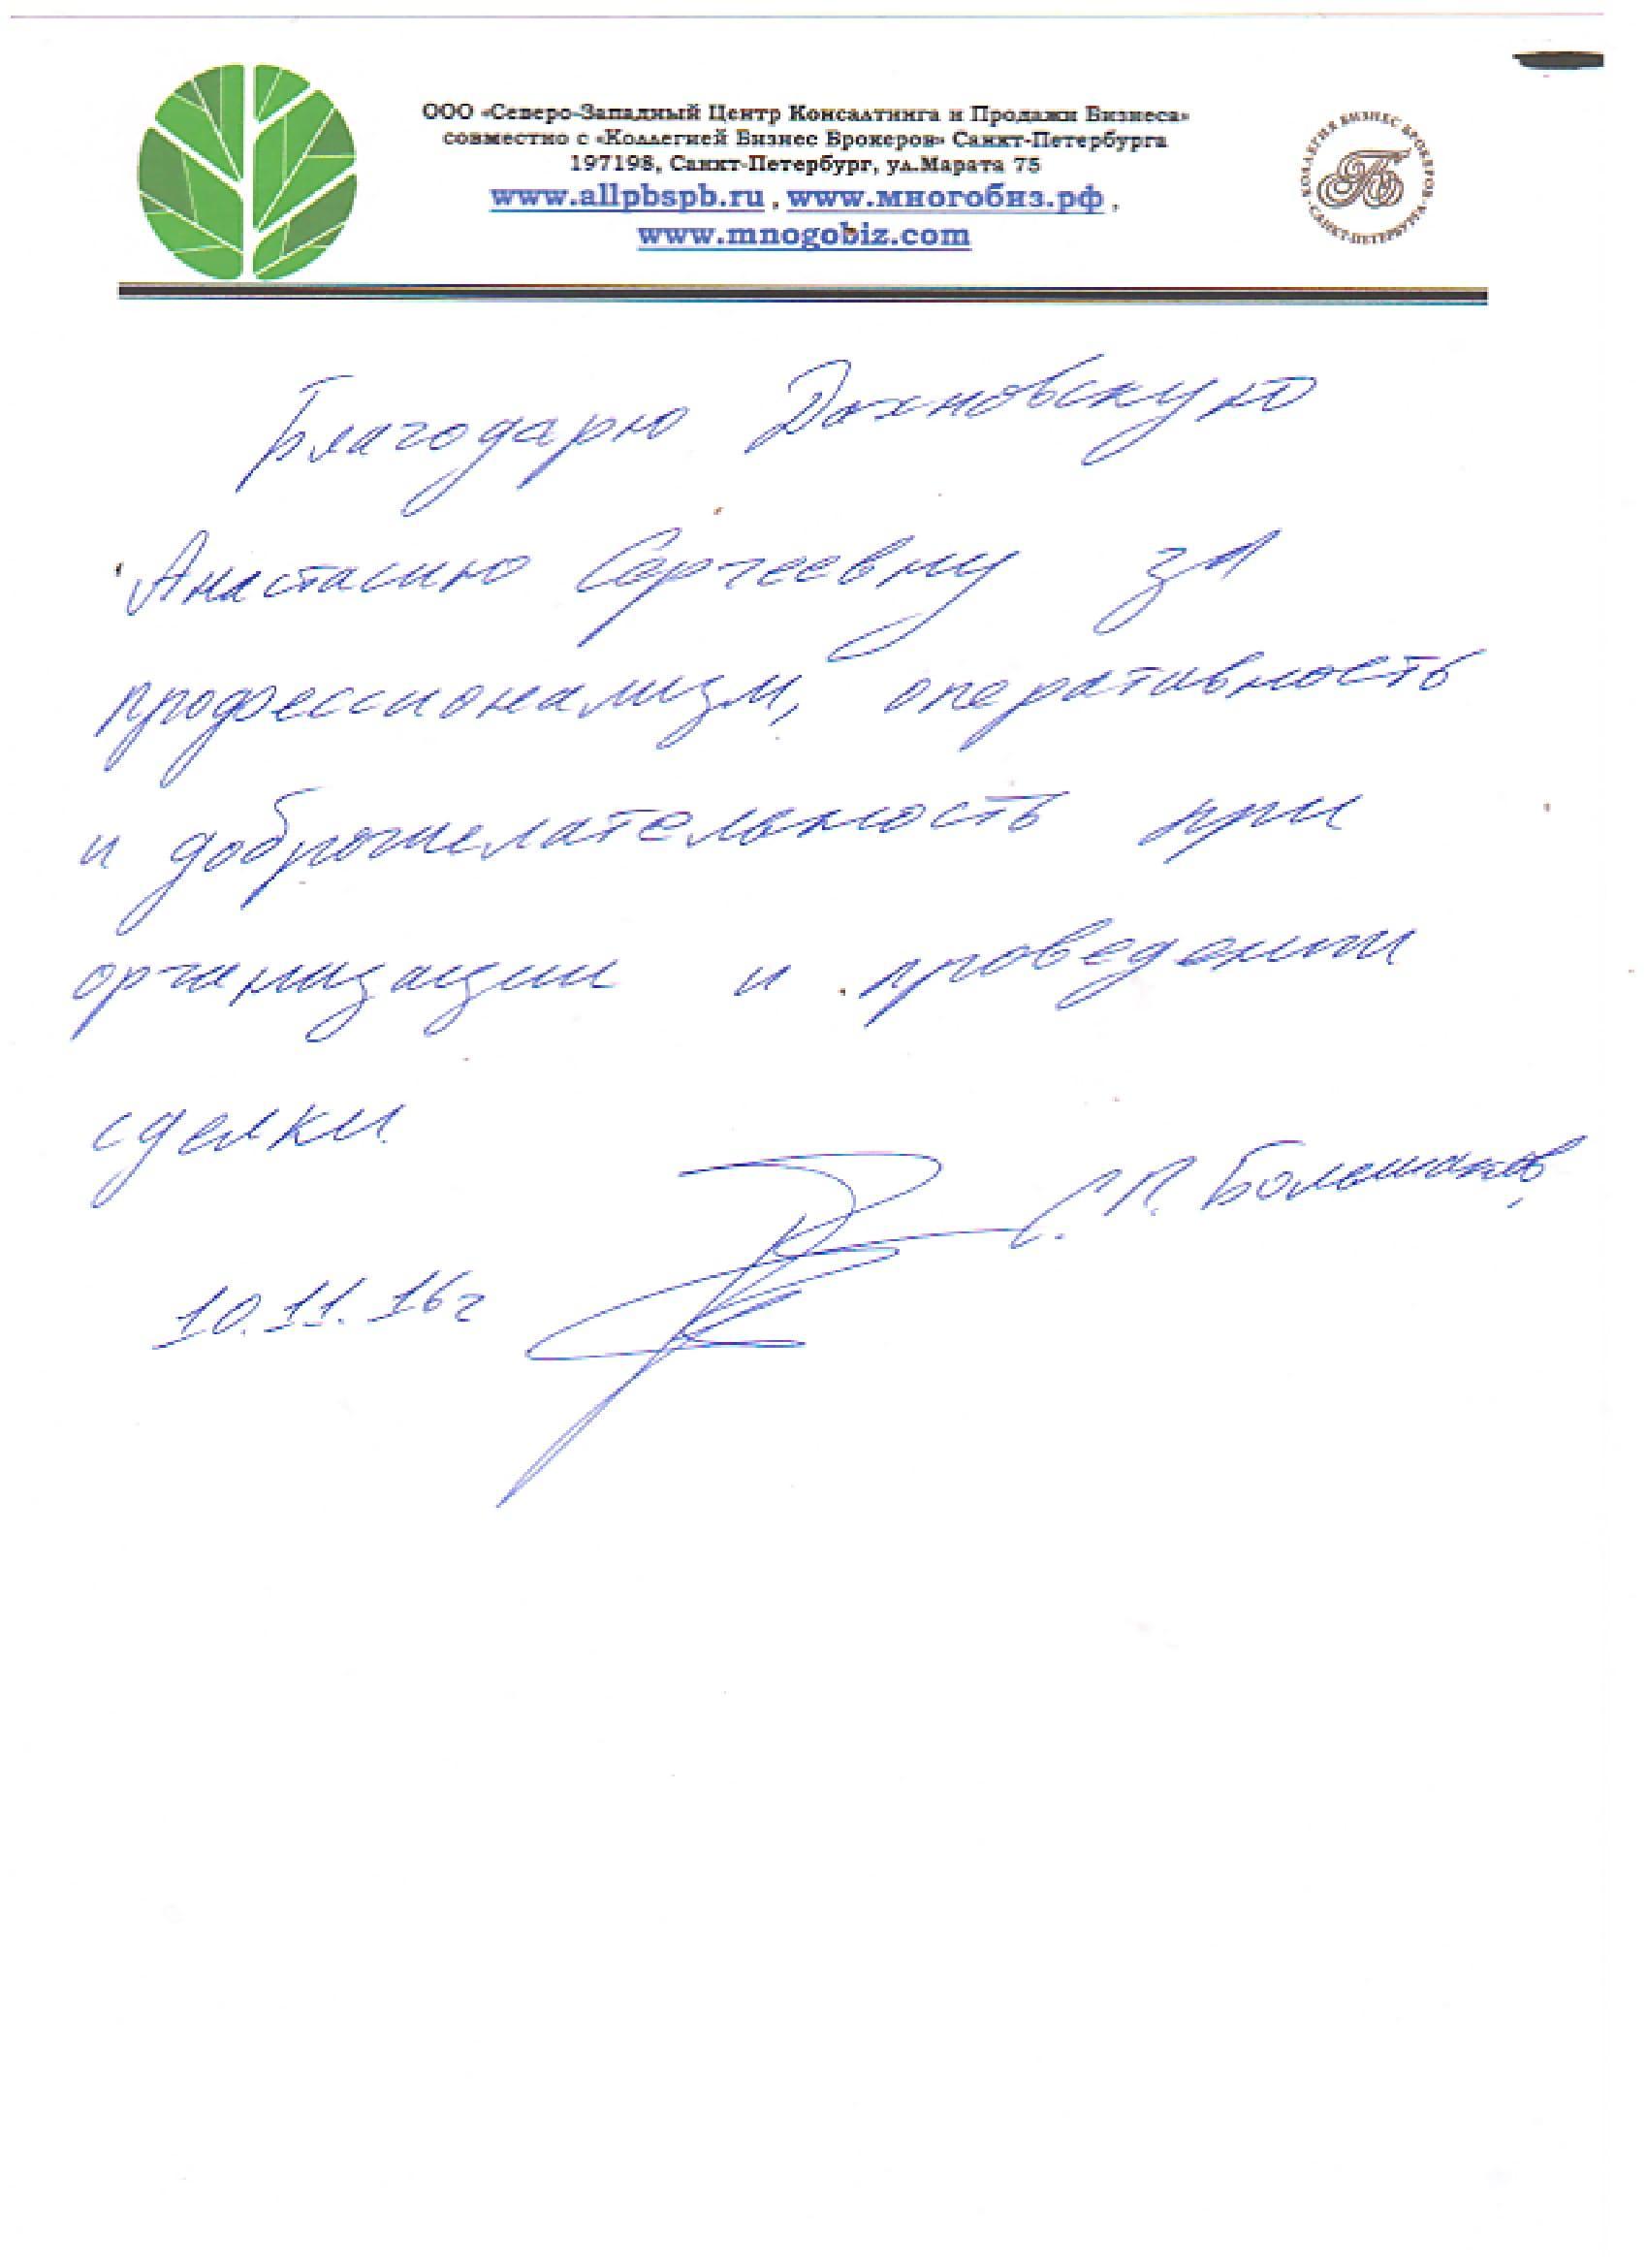 ООО «Северо-Западный Центр Консалтинга и Продажи Бизнеса»
совместно с «Коллегией Бизнес Брокеров» Санкт-Петербурга
197198, Санкт-Петербург, ул.Марата 75
www.allpbspb.ru , www.многобиз.рф ,
www.mnogobiz.com
КОЛЛЕГИЯ БИЗНЕС БРОКЕРОВ
САНКТ-ПЕТЕРБУРГА
Благодарю Дахновскую
Анастасию Сергеевну за
профессионализм, оперативность
и доброжелательность при
организации и проведении
сделки.
С.П. Большаков
10.11.16г